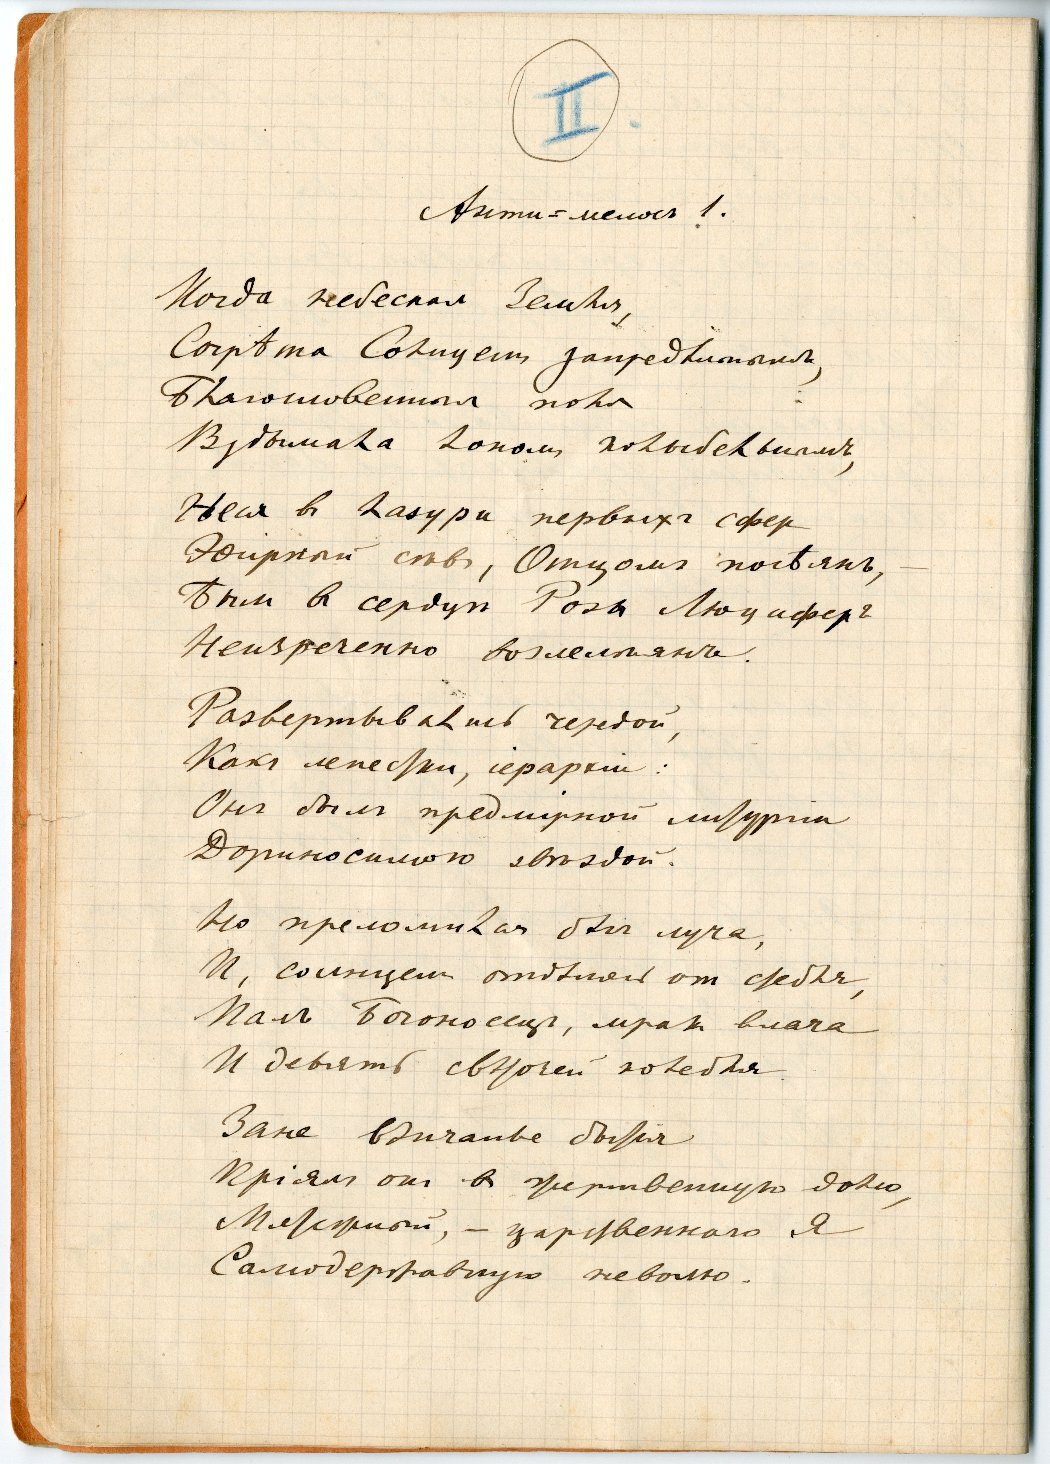 II.
Анти=мелосъ 1.
Когда небесная Земля,
Согрѣта Солнцемъ запредѣльнымъ,
Благословенныя поля
Вздымала лономъ колыбельнымъ,
Нося въ лазури первыхъ сферъ
Эѳирный сѣвъ, Отцомъ посѣянъ, —
Былъ въ сердце Розы Люциферъ
Неизреченно возлелѣянъ.
Развертывались чередой,
Какъ лепестки, іерархіи:
Онъ былъ предмірной литургіи
Дориносимою звѣздой.
Но преломилъ онъ бѣгъ луча,
И, солнцемъ отдѣлясь от стебля,
Палъ Богоносецъ, мракъ влача
И девять свѣточей колебля.
Зане величанье бытія
Пріялъ онъ въ жертвенную долю,
Мятежный, — царственнаго Я
Самодержавную неволю.